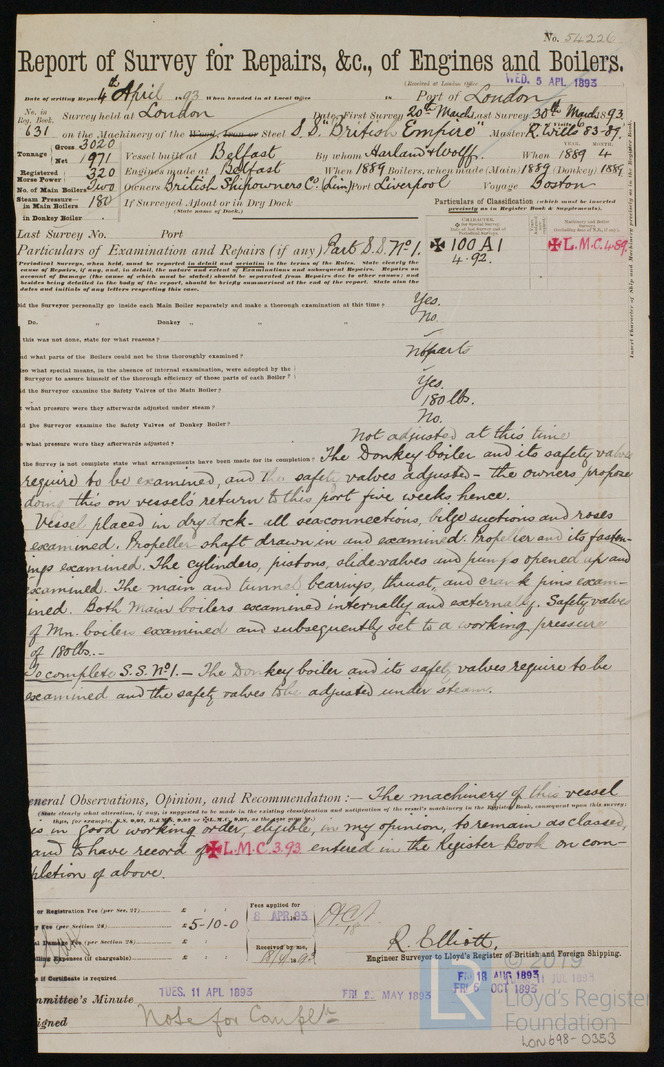 No. 54226
Report of Survey for Repairs, &c., of Engines and Boilers.
(Received at London Office WED. 5 APL 1893
Date of writing Report 4th April 1893 When handed in at Local Office in Port of London
No. in Reg. Book. Survey held at London Date, First Survey 20th March Last Survey 30th March 1893
631 on the Machinery of the Wood, Iron or Steel S.S. "British Empire" Master R. Wills 83-89.
Tonnage Gross 3020 Net 1971 Vessel built at Belfast By whom Harland & Wolff When 1889 4
YEAR. MONTH.
Registered Horse Power 320 Engines made at Belfast When 1889 Boilers, when made (Main) 1889 (Donkey) 1889
No. of Main Boilers Two Owners British Shipowners Co. (Lim) Port Liverpool Voyage Boston
Steam Pressure in Main Boilers 180 If Surveyed Afloat or in Dry Dock
(State name of Dock.)
in Donkey Boiler
Particulars of Classification (which must be inserted precisely as in Register Book & Supplements).
Last Survey No. Port
Particulars of Examination and Repairs (if any) Part S.S. No. 1.
✠ 100 A1
4.92.
✠ L.M.C. 4.89.
Insert Character of Ship and Machinery precisely as in the Register Book.
Periodical Surveys, when held, must be reported in detail and seriatim in the terms of the Rules. State clearly the
cause of Repairs, if any, and, in detail, the nature and extent of Examinations and subsequent Repairs. Repairs on
account of Damage (the cause of which must be stated) should be separated from Repairs due to other causes; and
besides being detailed in the body of the report, should be briefly summarised at the end of the report. State also the
dates and initials of any letters respecting this case.
Did the Surveyor personally go inside each Main Boiler separately and make a thorough examination at this time? Yes.
Do. „ Donkey „ „ „ No.
this was not done, state for what reasons? –
nd what parts of the Boilers could not be thus thoroughly examined? No parts
lso what special means, in the absence of internal examination, were adopted by the
Surveyor to assure himself of the thorough efficiency of those parts of each Boiler? –
d the Surveyor examine the Safety Valves of the Main Boiler? Yes.
what pressure were they afterwards adjusted under steam? 180 lbs.
d the Surveyor examine the Safety Valves of Donkey Boiler? No.
what pressure were they afterwards adjusted? Not adjusted at this time
the Survey is not complete state what arrangements have been made for its completion? The Donkey boiler and its safety valves
require to be examined, and the safety valves adjusted - the owners propose
doing this on vessel's return to this port five weeks hence.
Vessel placed in dry dock - all sea connections, bilge suctions and roses
examined. Propeller shaft drawn in and examined. Propeller and its fasten-
ings examined. The cylinders, pistons, slide valves and pumps opened up and
examined. The main and tunnel bearings, thrust, and crank pins exam-
ined. Both Main boilers examined internally and externally. Safety valves
of Mn. boilers examined and subsequently set to a working pressure
of 180 lbs. -
To complete S.S. No. 1. - The Donkey boiler and its safety valves require to be
examined and the safety valves to be adjusted under steam.
eneral Observations, Opinion, and Recommendation :— The machinery of this vessel
(State clearly what alteration, if any, is suggested to be made in the existing classification and notification of the vessel's machinery in the Register Book, consequent upon this survey;
is in good working order, eligible, in my opinion, to remain as classed,
and to have record of ✠ L.M.C. 3.93 entered in the Register Book on com-
pletion of above.
or Registration Fee (per Sec. 27) £ Fees applied for
8 APR. 93
y Fee (per Section 28) £ 5-10-0
al Damage Fee (per Section 28) £ Received by me,
elling Expenses (if chargeable) £
R. Elliott.
Engineer Surveyor to Lloyd's Register of British and Foreign Shipping.
e if Certificate is required
mmittee's Minute TUES. 11 APL 1893 MAY 1893 FRI 18 AUG 1893 JUL 1893
FRI 6 OCT 1893
signed Note for Compltn
© 2019
LR
Lloyd's Register
Foundation
LON698-0353